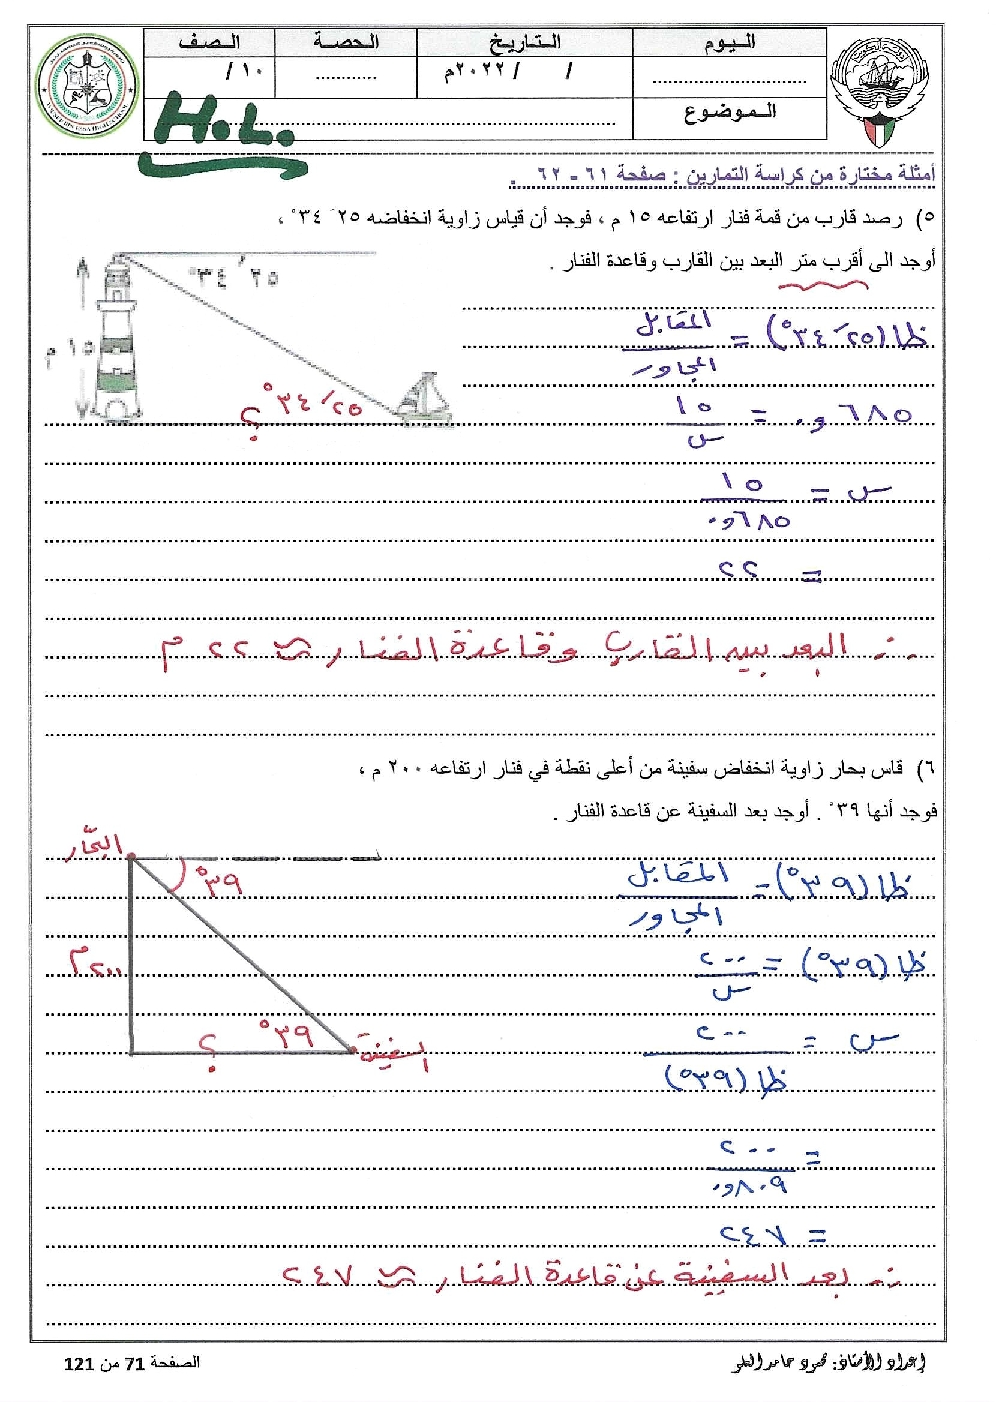 اليوم التاريخ الحصة الصف
.................... / / ٢٠٢٢م ............ ١٠ /
الموضوع
H.L.
أمثلة مختارة من كراسة التمارين : صفحة ٦١ - ٦٢ .
٥) رصد قارب من قمة فنار ارتفاعه ١٥ م ، فوجد أن قياس زاوية انخفاضه ٢٥ َ ٣٤ ° ،
أوجد الى أقرب متر البعد بين القارب وقاعدة الفنار .
٢٥ َ ٣٤°
١٥ م
٢٥ َ ٣٤°
؟
ظا (٢٥ َ ٣٤°) = المقابل / المجاور
٠,٦٨٥ = ١٥ / س
س = ١٥ / ٠,٦٨٥
= ٢٢
∴ البعد بين القارب وقاعدة الفنار ≈ ٢٢ م
٦) قاس بحار زاوية انخفاض سفينة من أعلى نقطة في فنار ارتفاعه ٢٠٠ م ،
فوجد أنها ٣٩ ° . أوجد بعد السفينة عن قاعدة الفنار .
البحّار
٣٩°
٢٠٠ م
٣٩°
؟
السفينة
ظا (٣٩°) = المقابل / المجاور
ظا (٣٩°) = ٢٠٠ / س
س = ٢٠٠ / ظا (٣٩°)
= ٢٠٠ / ٠,٨٠٩
= ٢٤٧
∴ بعد السفينة عن قاعدة الفنار ≈ ٢٤٧
إعداد الأستاذ: محمود حامد العلو
الصفحة 71 من 121